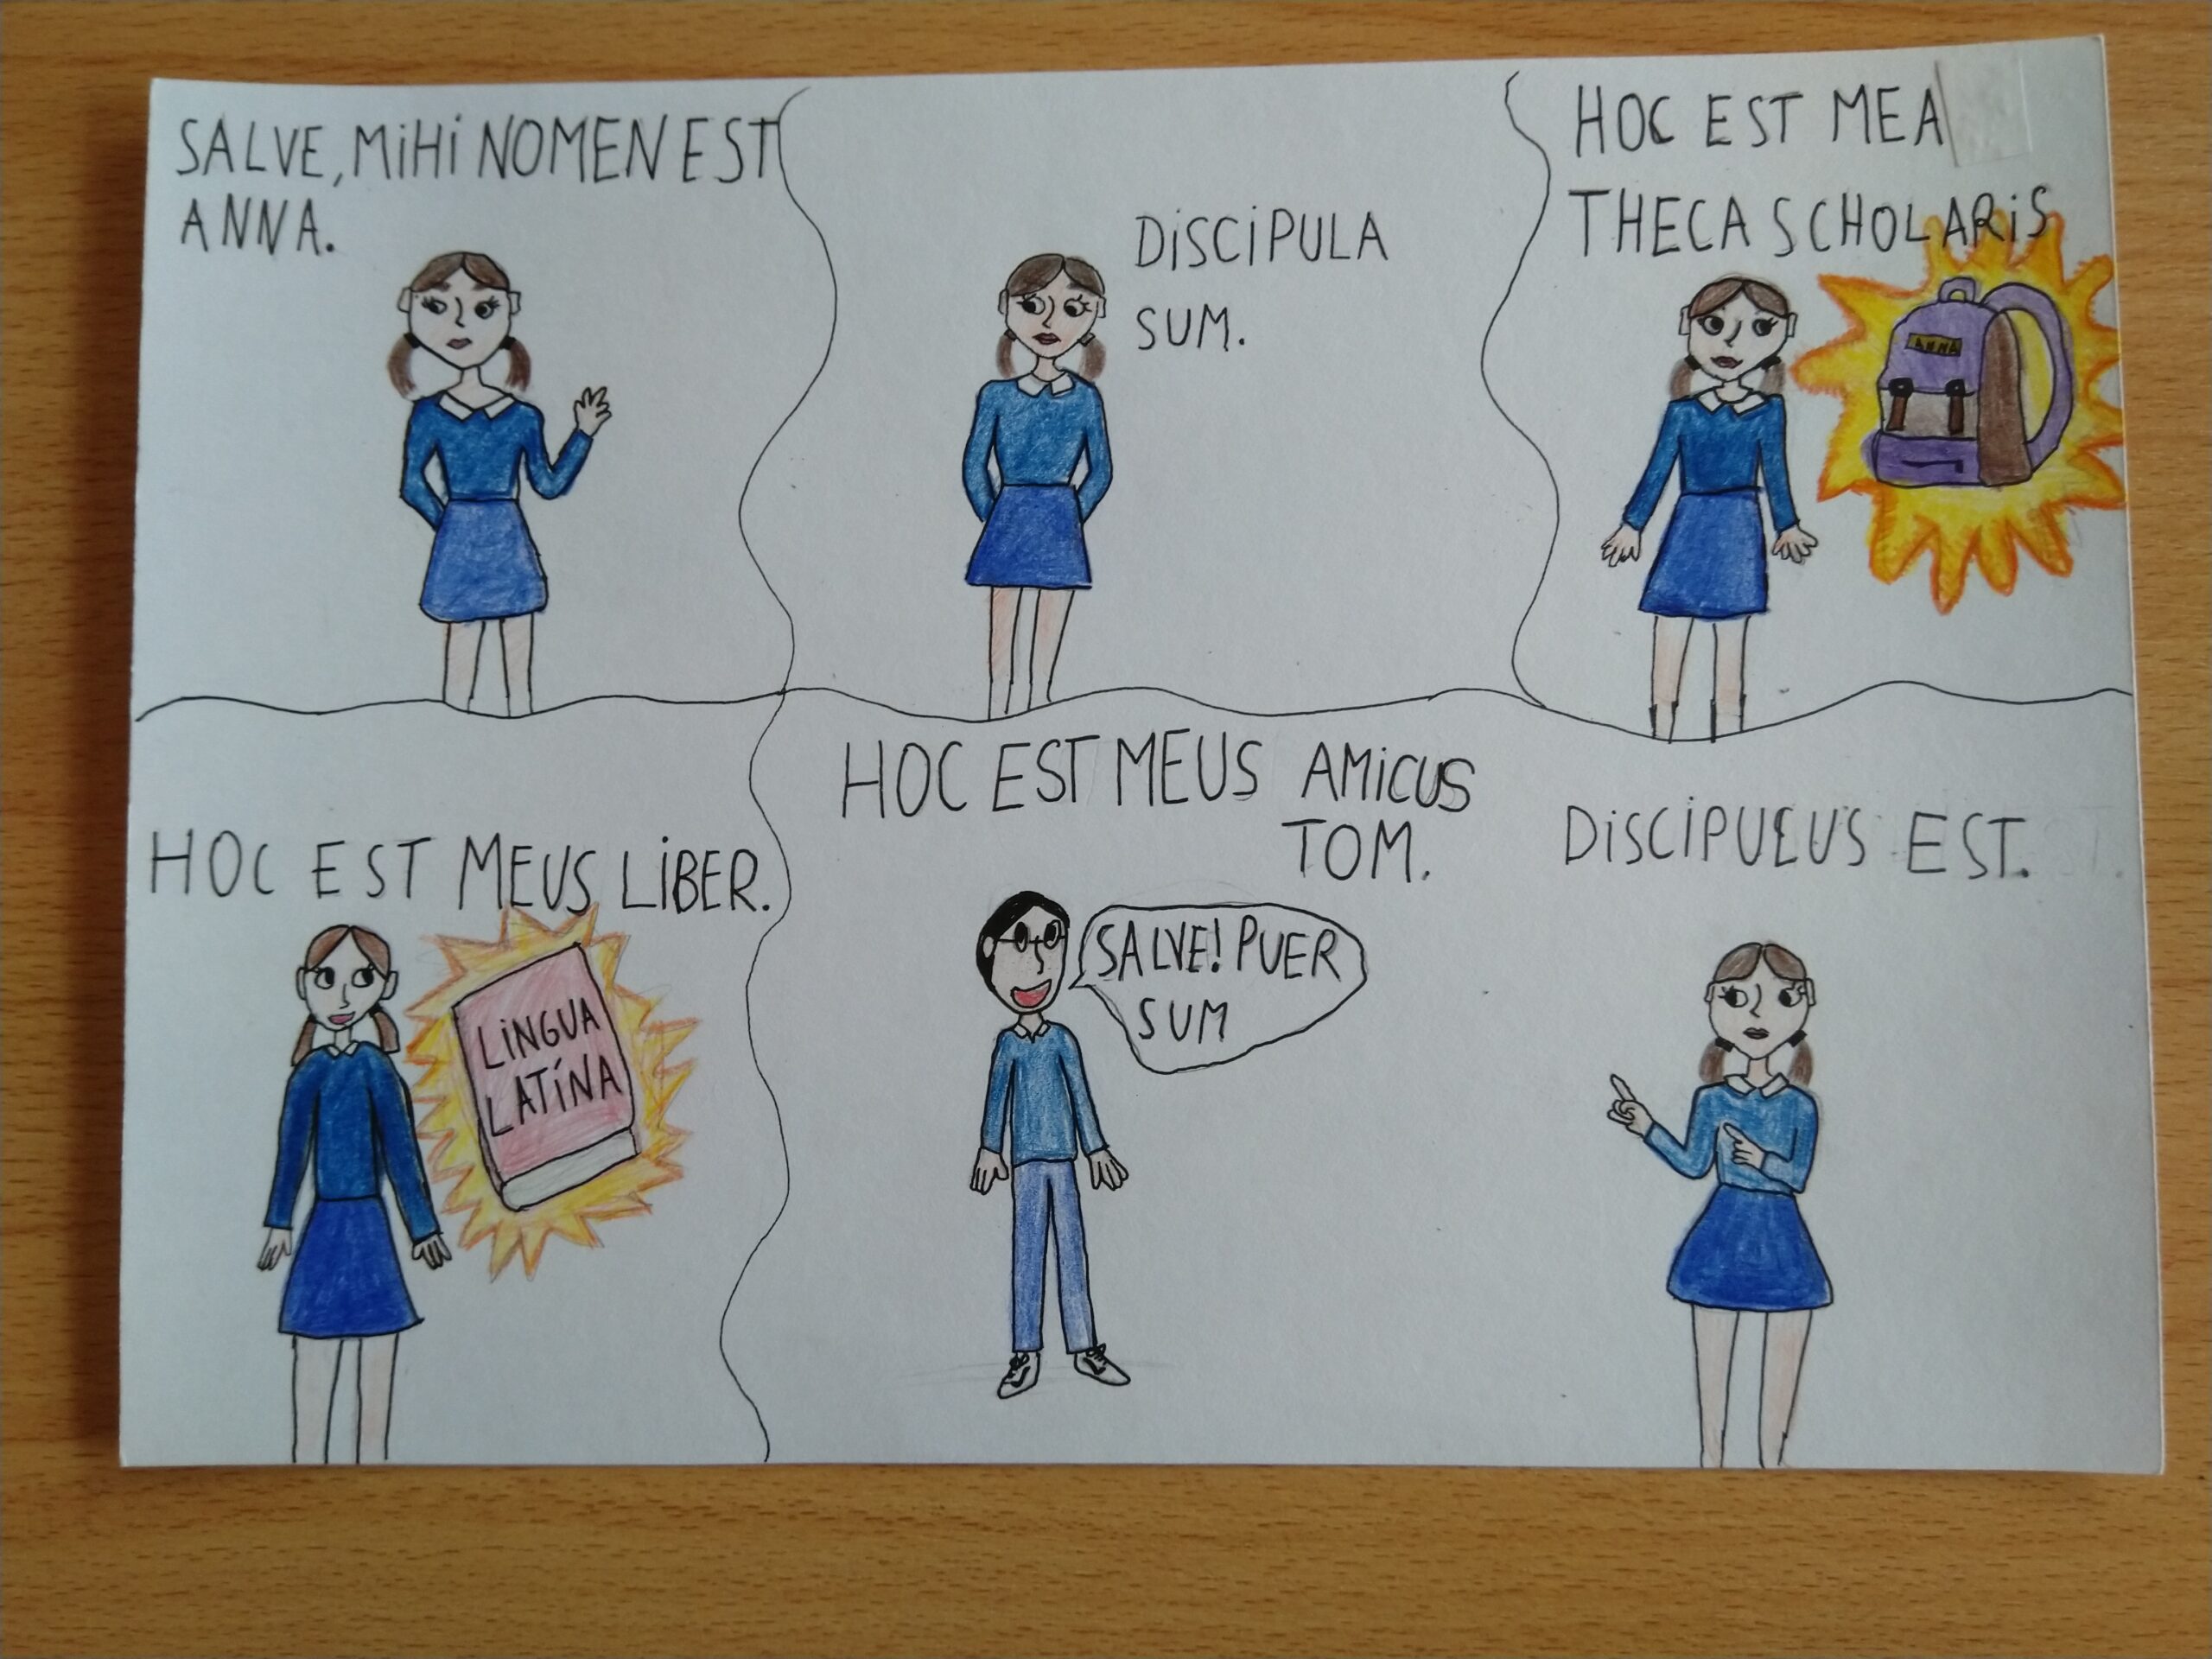 SALVE, MiHi NOMEN EST
ANNA.
DiSCiPULA
SUM.
HOC EST MEA
THECA SCHOLARiS
ANNA
HOC EST MEUS LiBER.
LiNGUA
LATíNA
HOC EST MEUS AMiCUS
TOM.
SALVE! PUER
SUM
DiSCiPULUS EST.